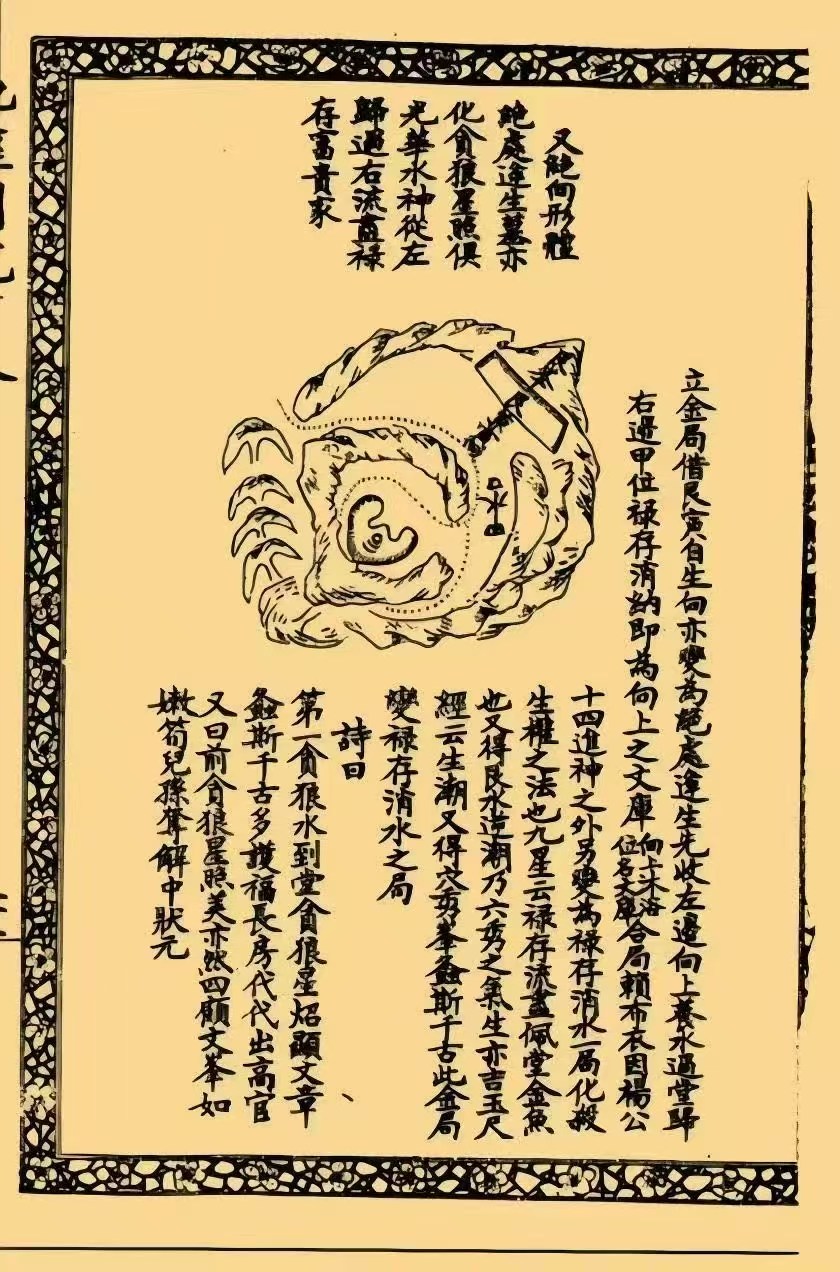 又絶向形體
絶處逢生墓亦
化貪狼星照俱
光華水神從左
歸過右流盡祿
存富貴家
水口
立金局借艮寅自生向亦變為絶處逢生先收左邊向上養水過堂歸
右邊甲位祿存消納即為向上之文庫向上沐浴位名文庫合局賴布衣因楊公
十四進神之外另變為祿存消水一局化殺
生權之法也九星云祿存流盡佩堂金魚
也又得艮水造潮乃六秀之氣生亦吉玉尺
經云生潮又得穴秀峯螽斯千古此金局
變祿存消水之局
詩曰
第一貪狼水到堂貪狼星炤顯文章
螽斯千古多護福長房代代出高官
又曰前貪狼星照美亦然四顧文峯如
嫩筍兒孫奪解中狀元